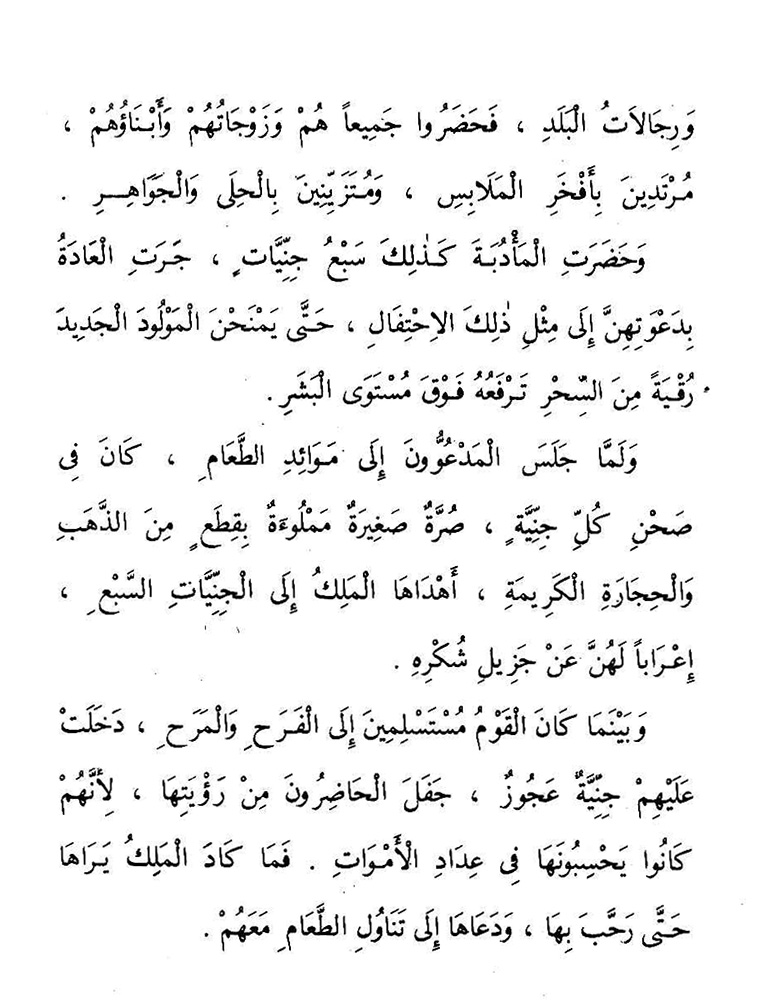 وَرِجَالاَتُ الْبَلَدِ ، فَحَضَرُوا جَمِيعاً هُمْ وَزَوْجَاتُهُمْ وَأَبْنَاؤُهُمْ ،
مُرْتَدِينَ بِأَفْخَرِ الْمَلَابِسِ ، وَمُتَزَيِّنِينَ بِالْحِلَى وَالْجَوَاهِرِ .
وَحَضَرَتِ الْمَأْدُبَةَ كَذٰلِكَ سَبْعُ جِنِّيَّاتٍ ، جَرَتِ الْعَادَةُ
بِدَعْوَتِهِنَّ إِلَى مِثْلِ ذٰلِكَ الاِحْتِفَالِ ، حَتَّى يَمْنَحْنَ الْمَوْلُودَ الْجَدِيدَ
رُقْيَةً مِنَ السِّحْرِ تَرْفَعُهُ فَوْقَ مُسْتَوَى الْبَشَرِ .
وَلَمَّا جَلَسَ الْمَدْعُوُّونَ إِلَى مَوَائِدِ الطَّعَامِ ، كَانَ فِى
صَحْنِ كُلِّ جِنِّيَّةٍ ، صُرَّةٌ صَغِيرَةٌ مَمْلُوءَةٌ بِقِطَعٍ مِنَ الذَّهَبِ
وَالْحِجَارَةِ الْكَرِيمَةِ ، أَهْدَاهَا الْمَلِكُ إِلَى الْجِنِّيَّاتِ السَّبْعِ ،
إِعْرَاباً لَهُنَّ عَنْ جَزِيلِ شُكْرِهِ .
وَبَيْنَمَا كَانَ الْقَوْمُ مُسْتَسْلِمِينَ إِلَى الْفَرَحِ وَالْمَرَحِ ، دَخَلَتْ
عَلَيْهِمْ جِنِّيَّةٌ عَجُوزٌ ، جَفَلَ الْحَاضِرُونَ مِنْ رَؤْيَتِهَا ، لِأَنَّهُمْ
كَانُوا يَحْسِبُونَهَا فِى عِدَادِ الْأَمْوَاتِ . فَمَا كَادَ الْمَلِكُ يَرَاهَا
حَتَّى رَحَّبَ بِهَا ، وَدَعَاهَا إِلَى تَنَاوُلِ الطَّعَامِ مَعَهُمْ .